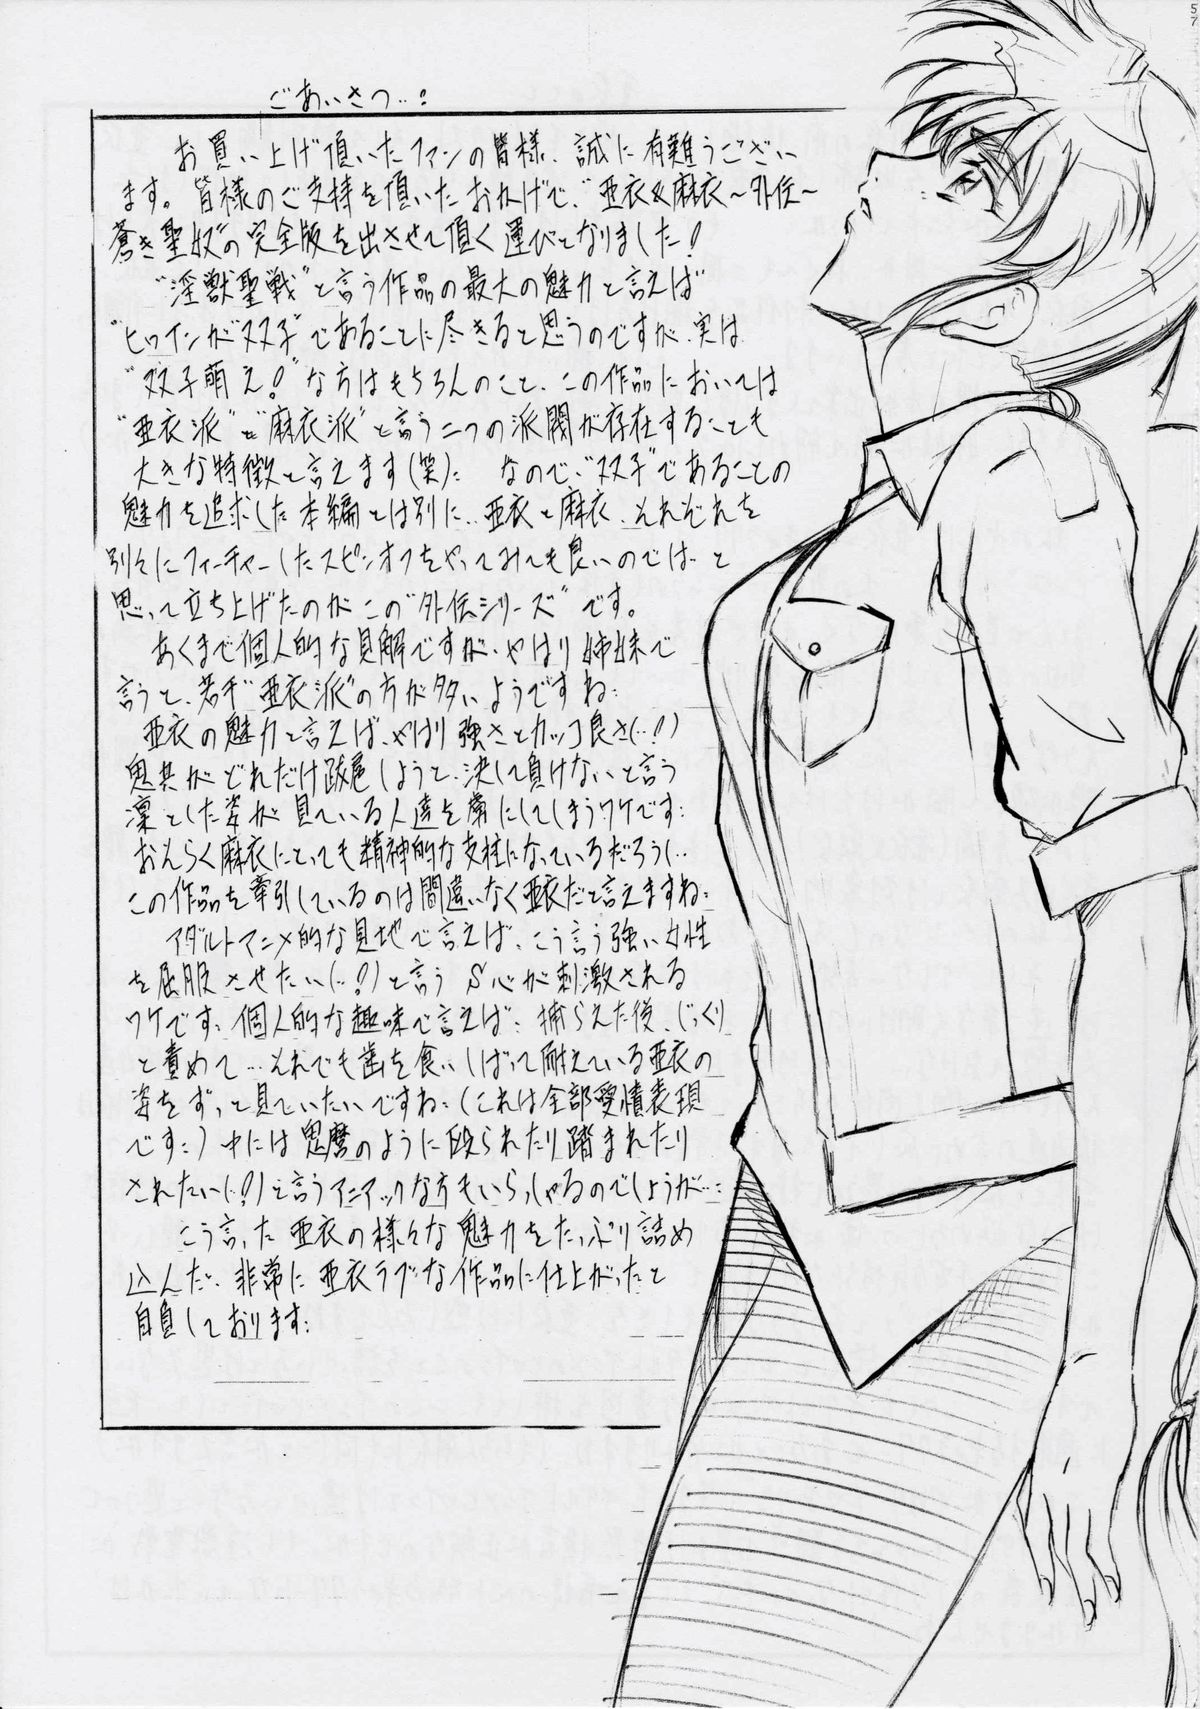 57
ごあいさつ…?
お買い上げ頂いたファンの皆様、誠に有難うござい
ます。皆様のご支持を頂いたおかげで、“亜衣&麻衣〜外伝〜
蒼き聖奴”の完全版を出させて頂く運びとなりました!
“淫獣聖戦”と言う作品の最大の魅力と言えば
“ヒロインが双子”であることに尽きると思うのですが、実は
“双子萌え!”な方はもちろんのこと、この作品においては
“亜衣派”と“麻衣派”と言う二つの派閥が存在することも
大きな特徴と言えます(笑)… なので、“双子”であることの
魅力を追求した本編とは別に…亜衣と麻衣、それぞれを
別々にフィーチャーしたスピンオフをやってみても良いのでは…と
思って立ち上げたのがこの“外伝シリーズ”です。
あくまで個人的な見解ですが、やはり姉妹で
言うと、若干“亜衣派”の方が多いようですね…
亜衣の魅力と言えば、やはり強さとカッコ良さ(…!)
鬼共がどれだけ跋扈しようと、決して負けないと言う
凛とした姿が見ている人達を虜にしてしまうワケです…
おそらく麻衣にとっても精神的な支柱になっているだろうし…
この作品を牽引しているのは間違いなく亜衣だと言えますね…
アダルトアニメ的な見地で言えば、こう言う強い女性
を屈服させたい(…!)と言うS心が刺激される
ワケです…個人的な趣味で言えば…捕らえた後、じっくり
と責めて…それでも歯を食いしばって耐えている亜衣の
姿をずっと見ていたいですね…(これは全部愛情表現
です…)中には鬼麿のように殴られたり踏まれたり
されたい(…?)と言うマニアックな方もいらっしゃるのでしょうが…
こう言った亜衣の様々な魅力をたっぷり詰め
込んだ、非常に亜衣ラブな作品に仕上がったと
自負しております…